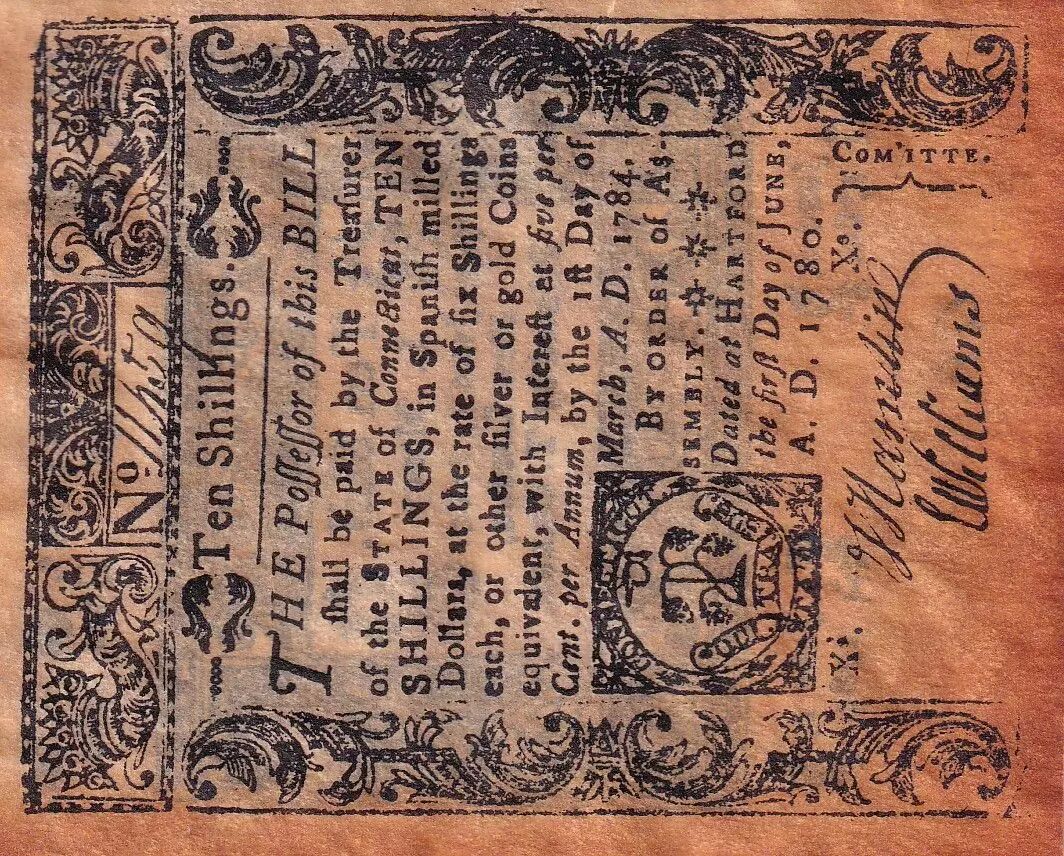 No.
Ten Shillings.
THE Poſſeſſor of this BILL
ſhall be paid by the Treaſurer
of the STATE of Connecticut, TEN
SHILLINGS, in Spaniſh milled
Dollars, at the rate of ſix Shillings
each, or other ſilver or gold Coins
equivalent, with Intereſt at five per
Cent. per Annum, by the 1ſt Day of
March, A. D. 1784.
BY ORDER of AS-
SEMBLY.
Dated at HARTFORD
the firſt Day of JUNE,
A. D. 1780.
QUI TRA
SUS
Xi. Xo.
COM'ITTE.
Williams